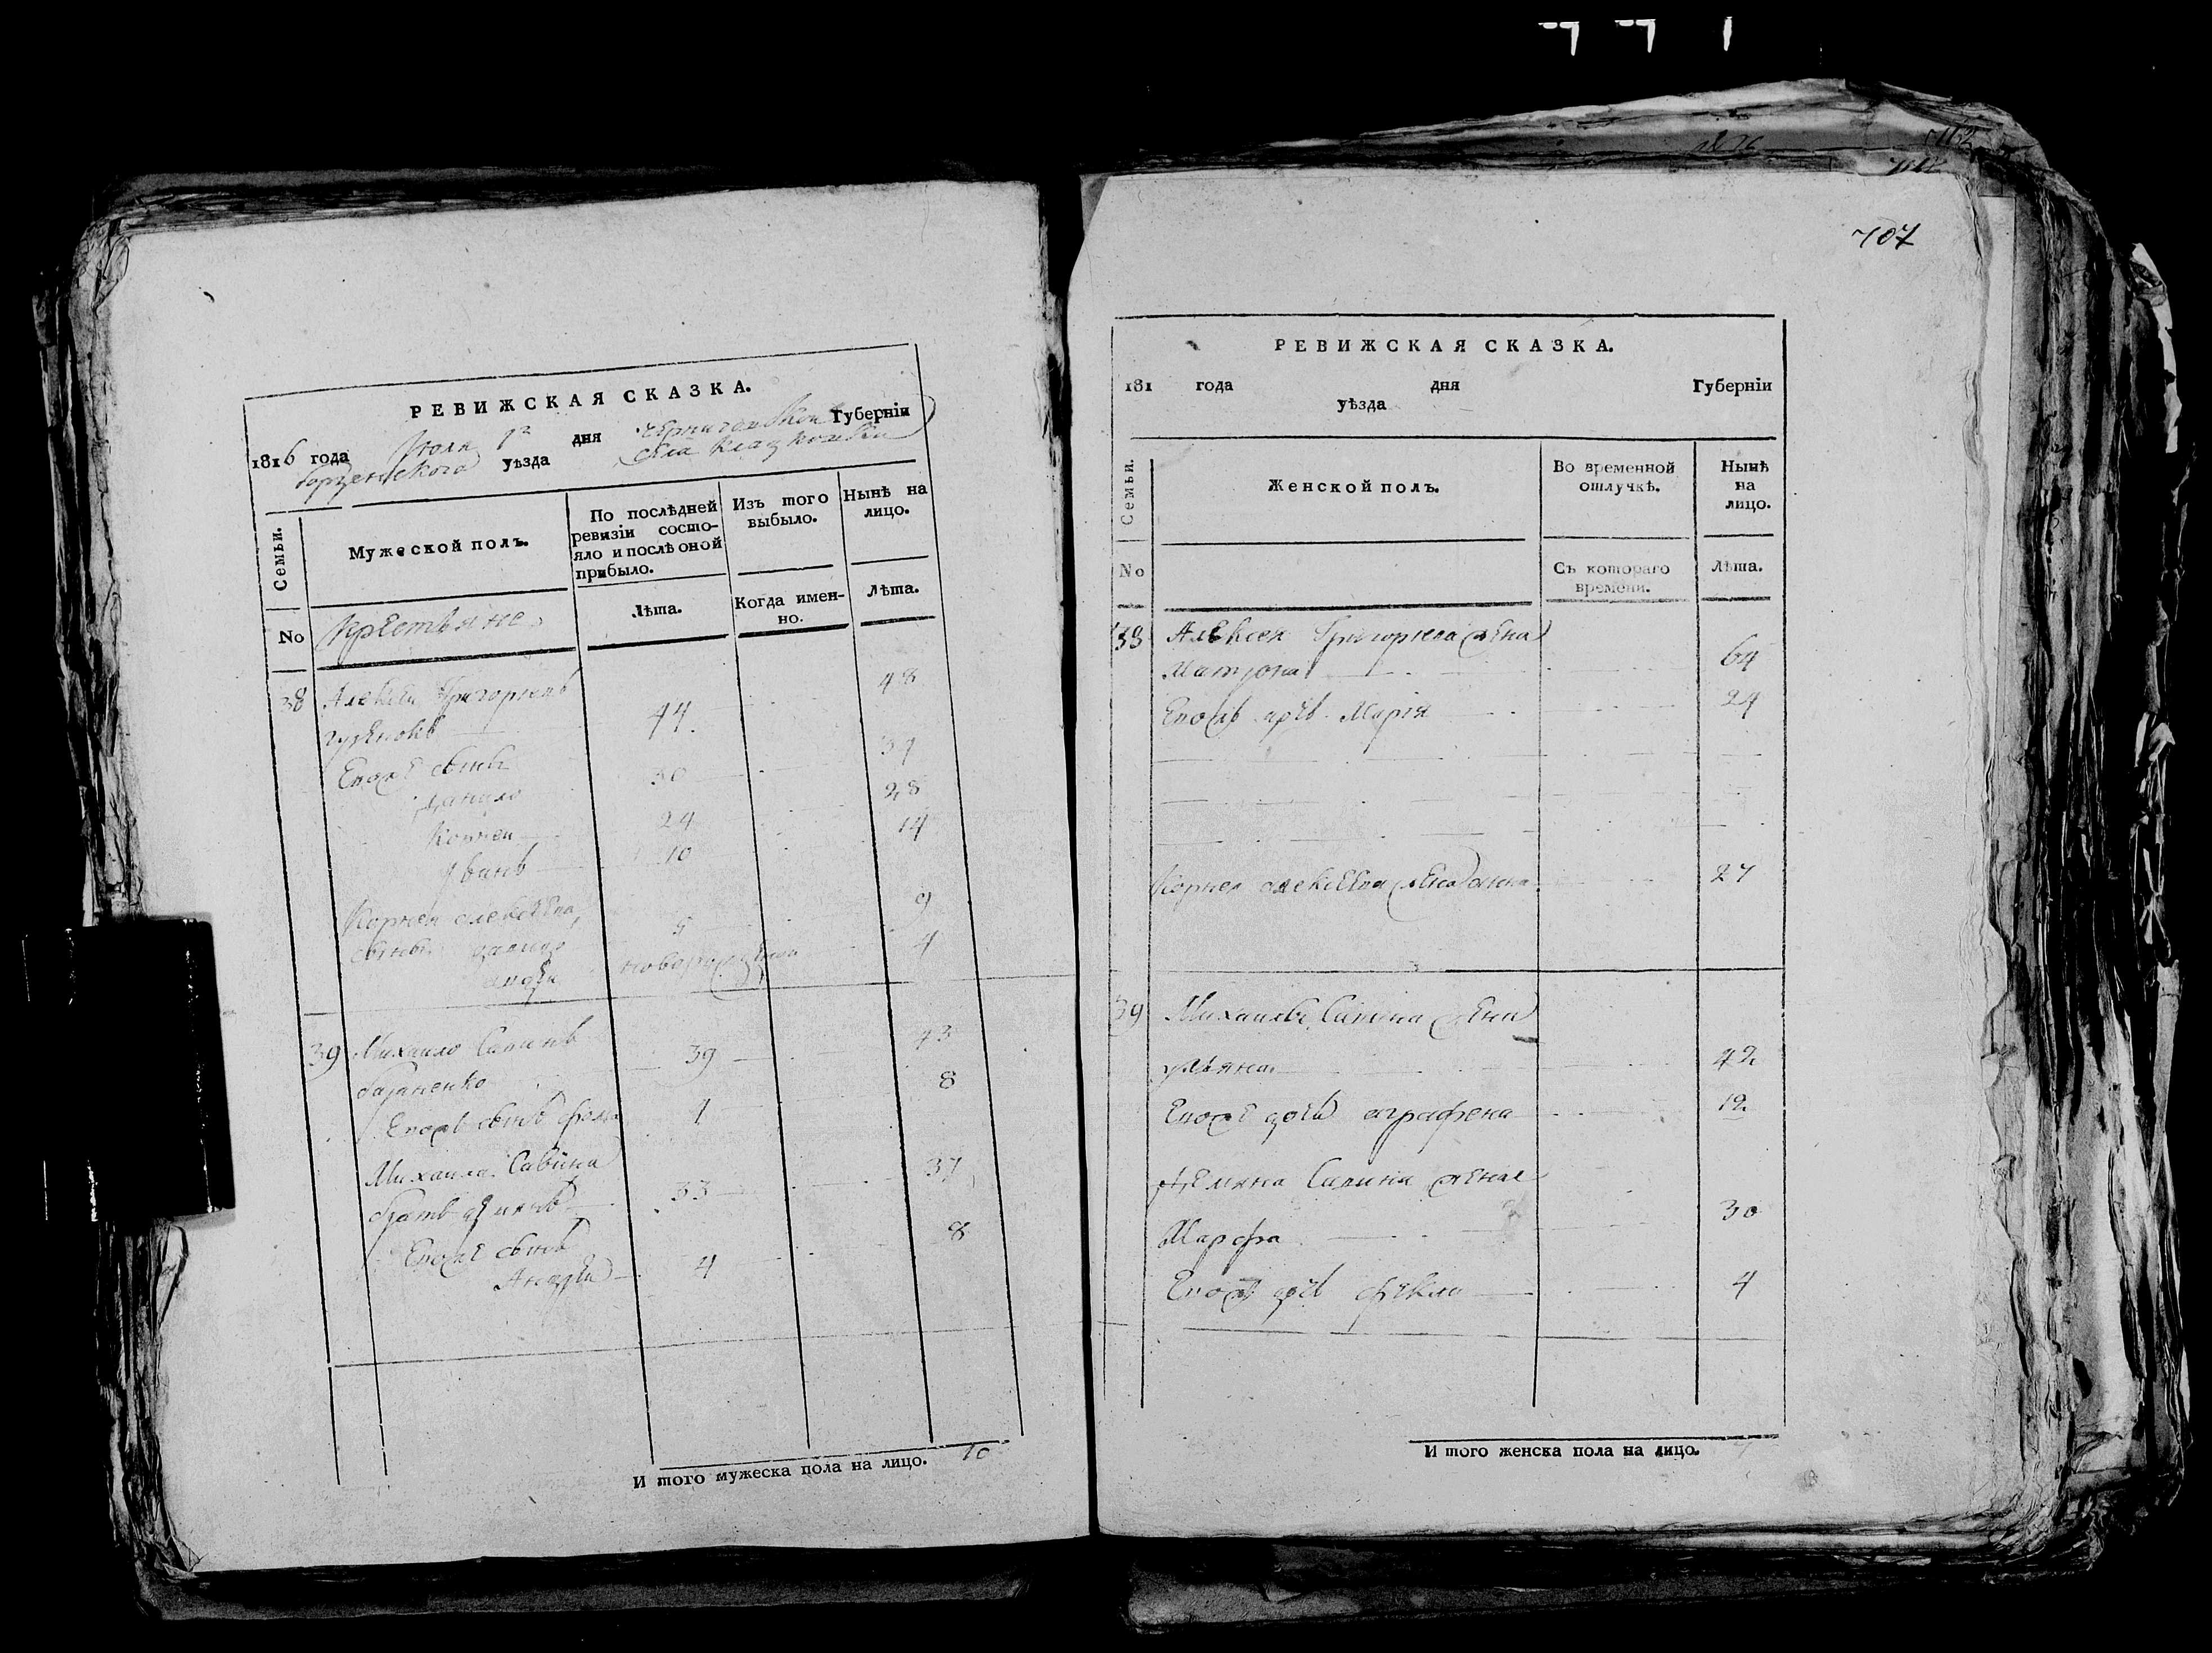 707
РЕВИЖСКАЯ СКАЗКА.
1816 года Июля 1го дня Черниговской Губерніи
Борзенского уѣзда села
Семьи.
Мужеской полъ.
По послѣдней ревизіи состояло и послѣ оной прибыло.
Изъ того выбыло.
Нынѣ на лицо.
No
Крестьяне
Лѣта.
Когда именно.
Лѣта.
38 Алексей Григорьевъ 48
44
Его же сыны
Данило 30
Корней 24 28
Иванъ 10 14
Корнея Алексеева
сыновья 5 9
новорожденъ 4
39 Михайло Савинъ 39 43
Его же сынъ 4 8
Михаила Савина
братъ 33 37
Его же сынъ
Андрей 4 8
И того мужеска пола на лицо. 10
РЕВИЖСКАЯ СКАЗКА.
181 года дня Губерніи
уѣзда
Семьи.
Женской полъ.
Во временной отлучкѣ.
Нынѣ на лицо.
No
Съ котораго времени.
Лѣта.
38 Алексея Григорьева жена
Матрона 64
Его же дочь Марія 24
Корнея Алексеева жена Анна 27
39 Михайлы Савина жена
Ульяна 42
Его же дочь Аграфена 12
Демяна Савина жена
Марфа 30
Его же дочь Фекла 4
И того женска пола на лицо. 7